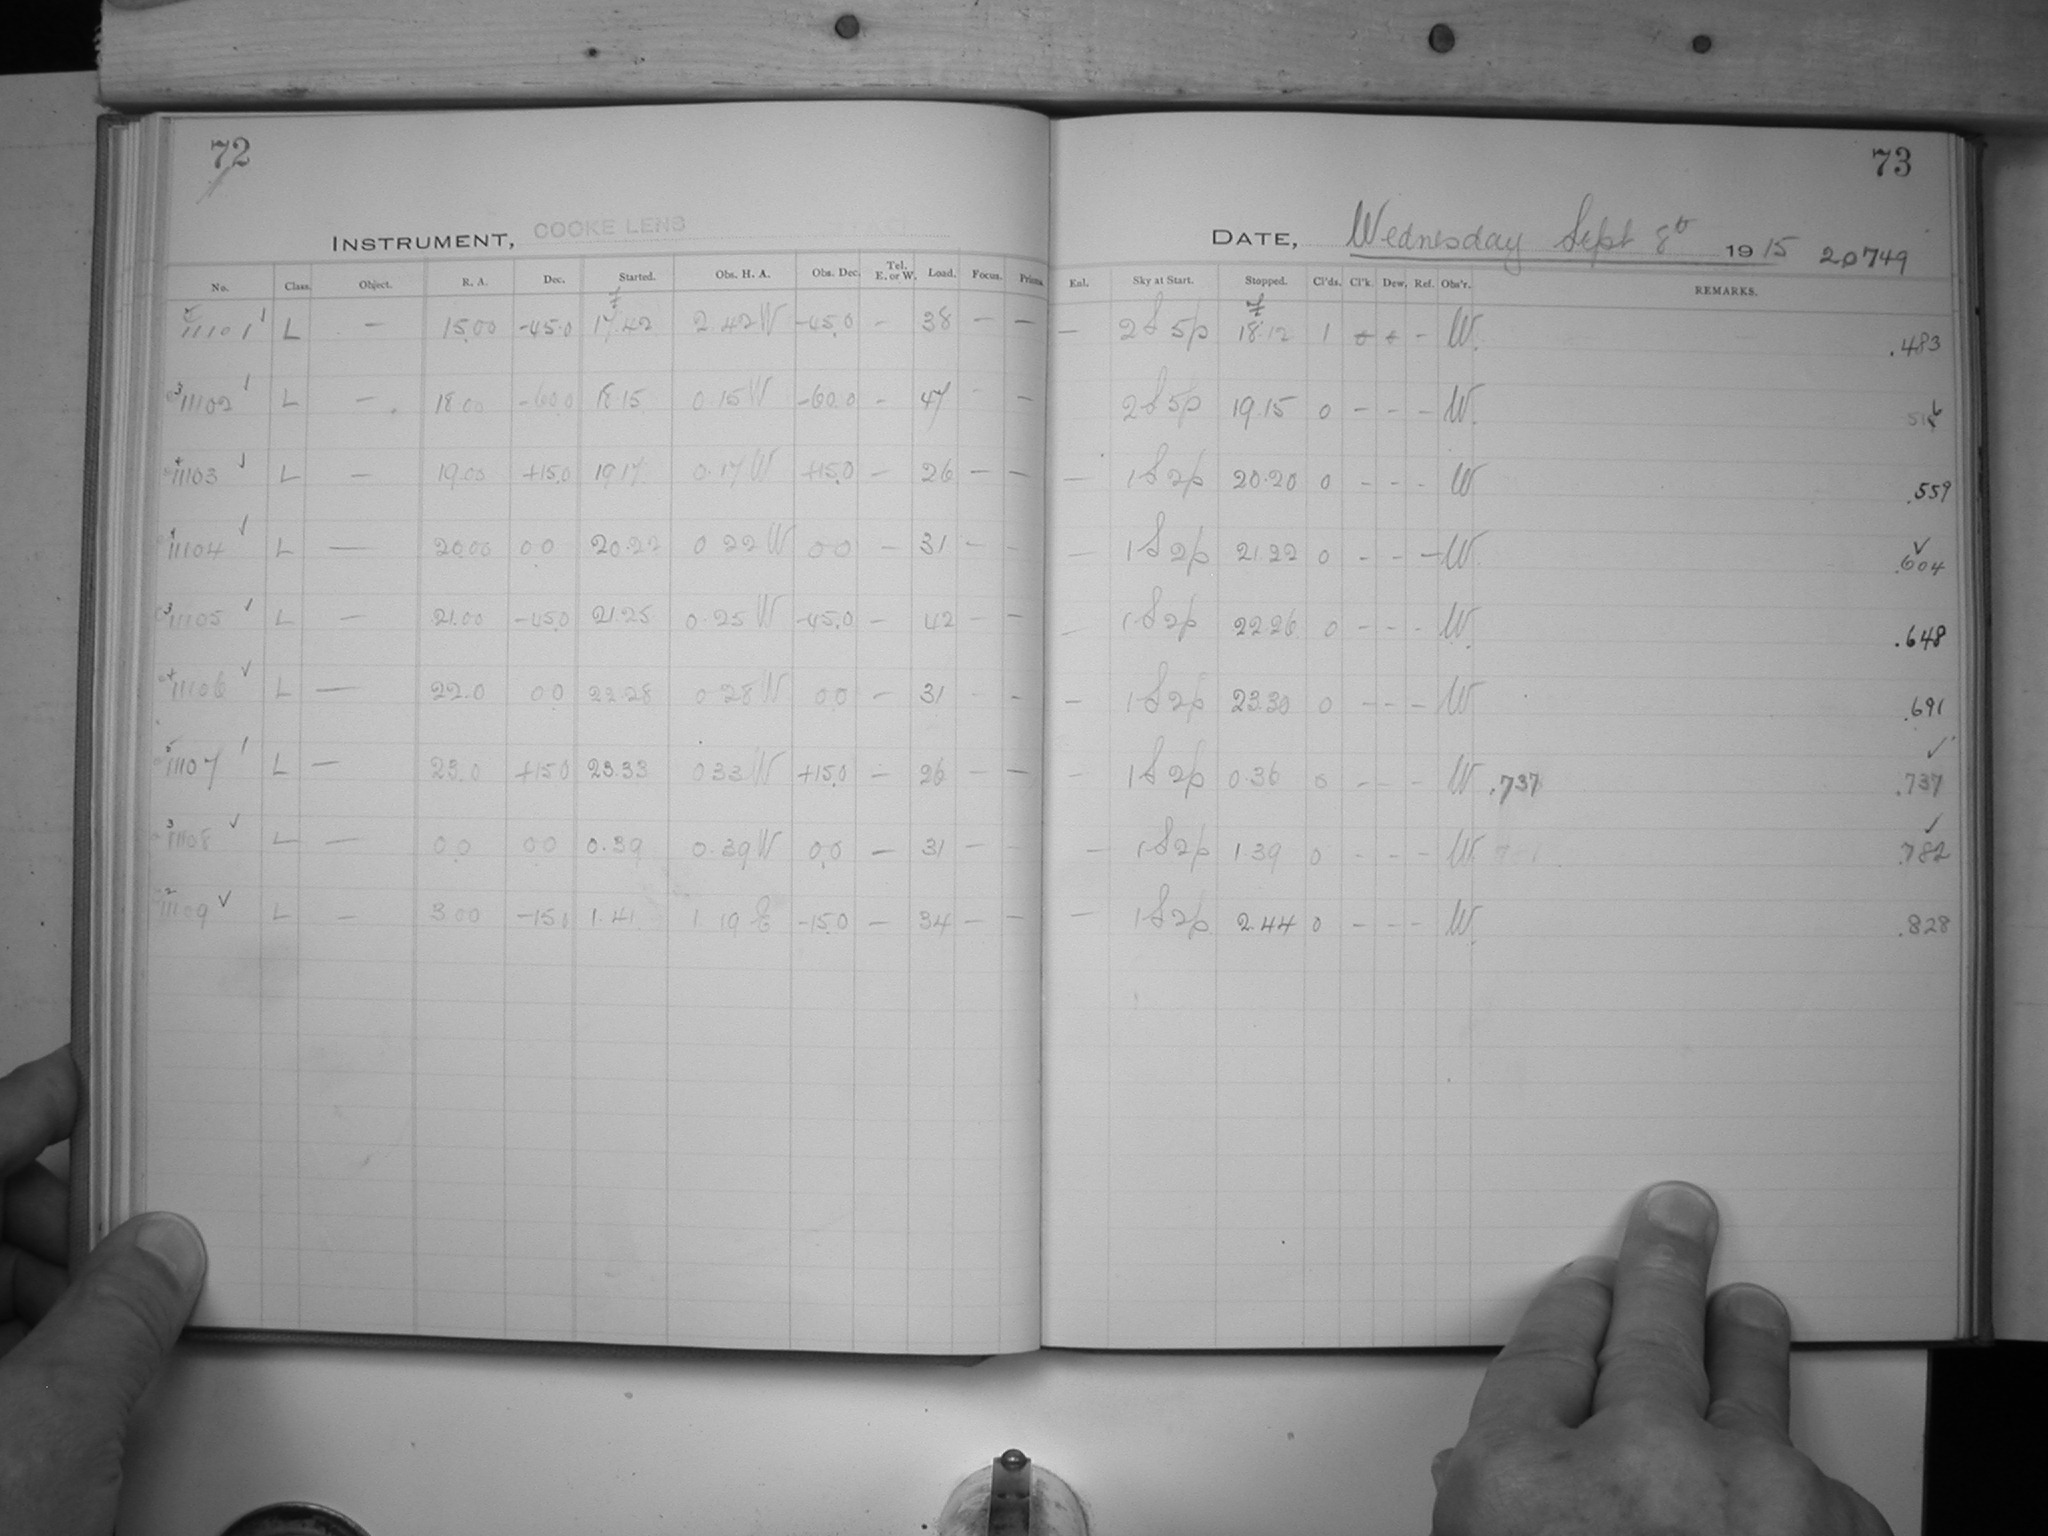 72
INSTRUMENT, COOKE LENS
No. Class. Object. R. A. Dec. Started. Obs. H. A. Obs. Dec. Tel. E. or W. Load. Focus. Prisms.
11101 L — 15.00 -45.0 17.42 2.42 W -45.0 - 38 — —
3 11102 L — 18.00 -60.0 18.15 0.15 W -60.0 - 47 - —
4 11103 L — 19.00 +15.0 19.17 0.17 W +15.0 — 26 — —
11104 L — 20.00 0 0 20.22 0 22 W 0 0 — 31 - -
3 11105 L — 21.00 -45.0 21.25 0.25 W -45.0 — 42 - —
4 11106 L — 22.0 0 0 22.28 0 28 W 0.0 — 31 - -
11107 L — 23.0 +15 0 23.33 0 33 W +15.0 — 26 — —
3 11108 L — 0.0 0 0 0.39 0.39 W 0.0 — 31 - -
2 11109 L — 3 00 -15.0 1.41 1 19 E -15.0 — 34 — —
73
DATE, Wednesday Sept 8th 1915 20749
Enl. Sky at Start. Stopped. Cl'ds. Cl'k. Dew. Ref. Obs'r. REMARKS.
— 2 S 5p 18.12 1 - W. .483
2 S 5p 19.15 0 - - - W.
— 1 S 2p 20.20 0 - - - W .559
— 1 S 2p 21.22 0 - - — W. ✓ .604
— 1 S 2p 22.26 0 - - - W. .648
— 1 S 2p 23.30 0 - - - W .691
- 1 S 2p 0.36 0 - - - W .737 ✓ .737
— 1 S 2p 1.39 0 - - - W. ✓ .782
— 1 S 2p 2.44 0 - - - W. .828